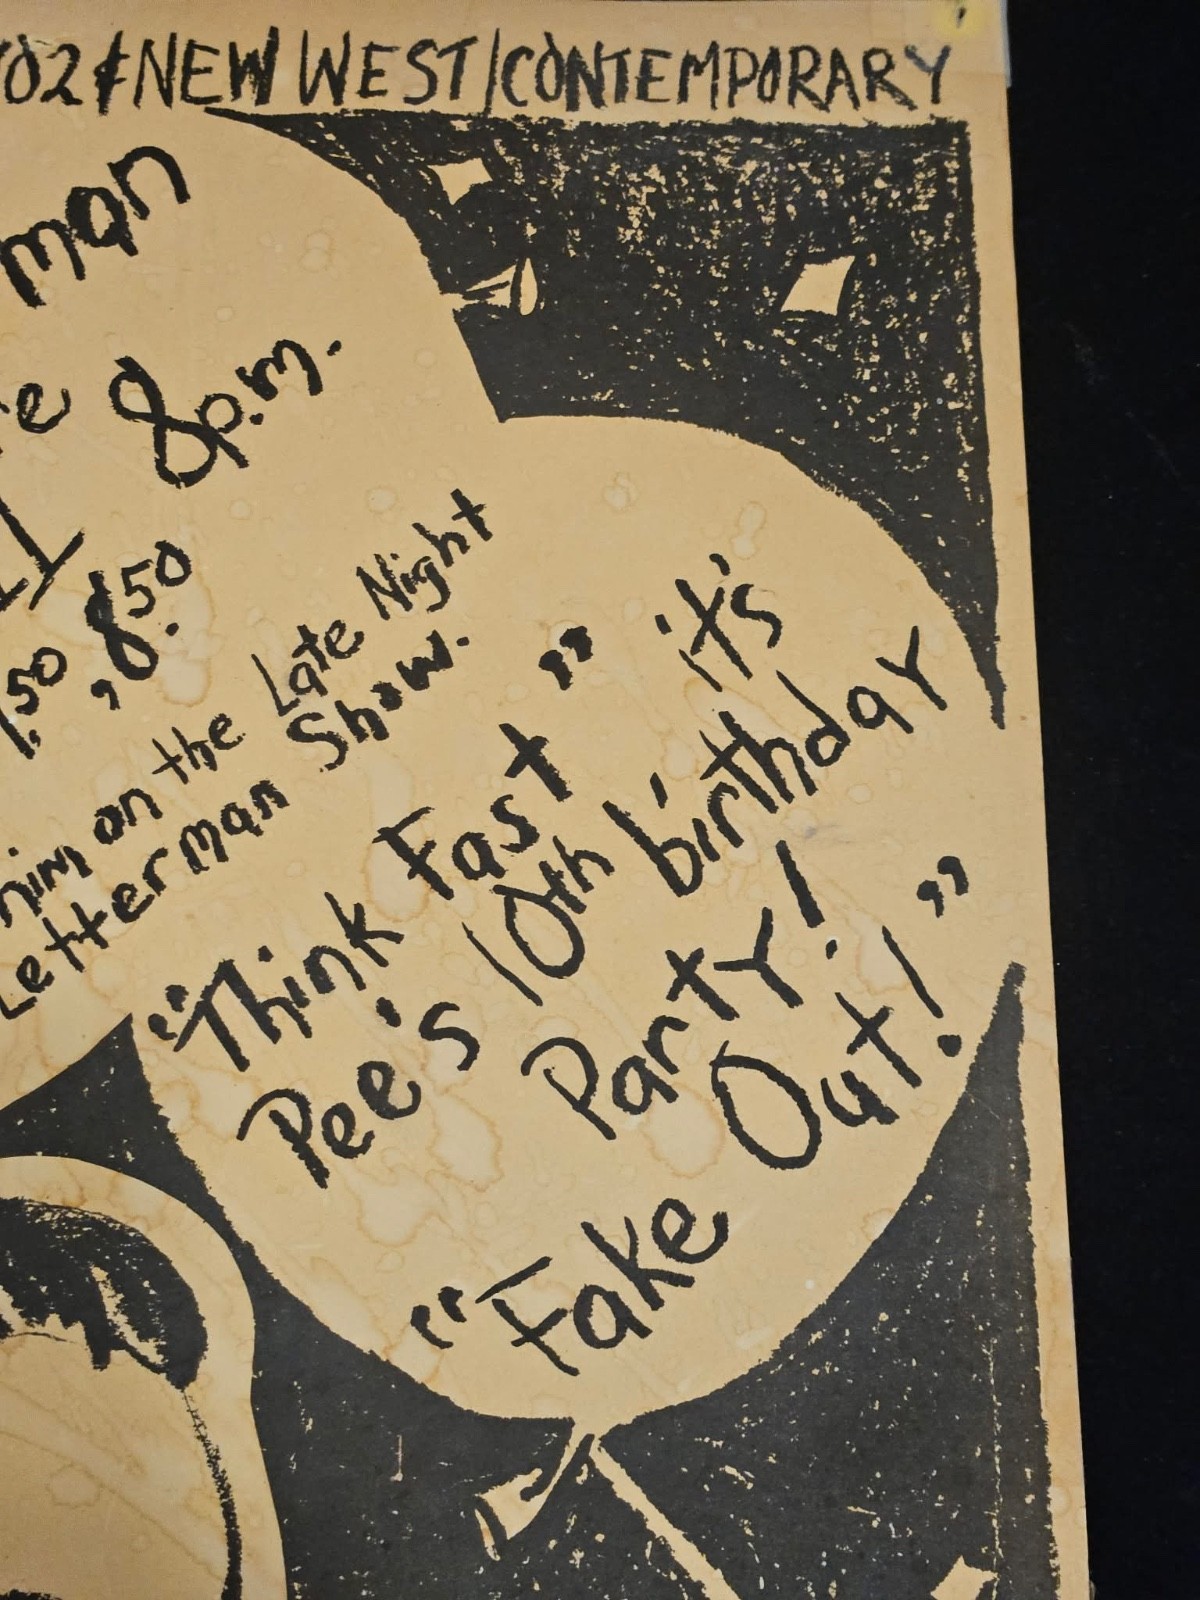 & NEW WEST/CONTEMPORARY
man
8 p.m.
.50, 8.50
him on the Late Night
Letterman Show.
"Think Fast" it's
Pee's 10th birthday
Party!
"Fake Out!"